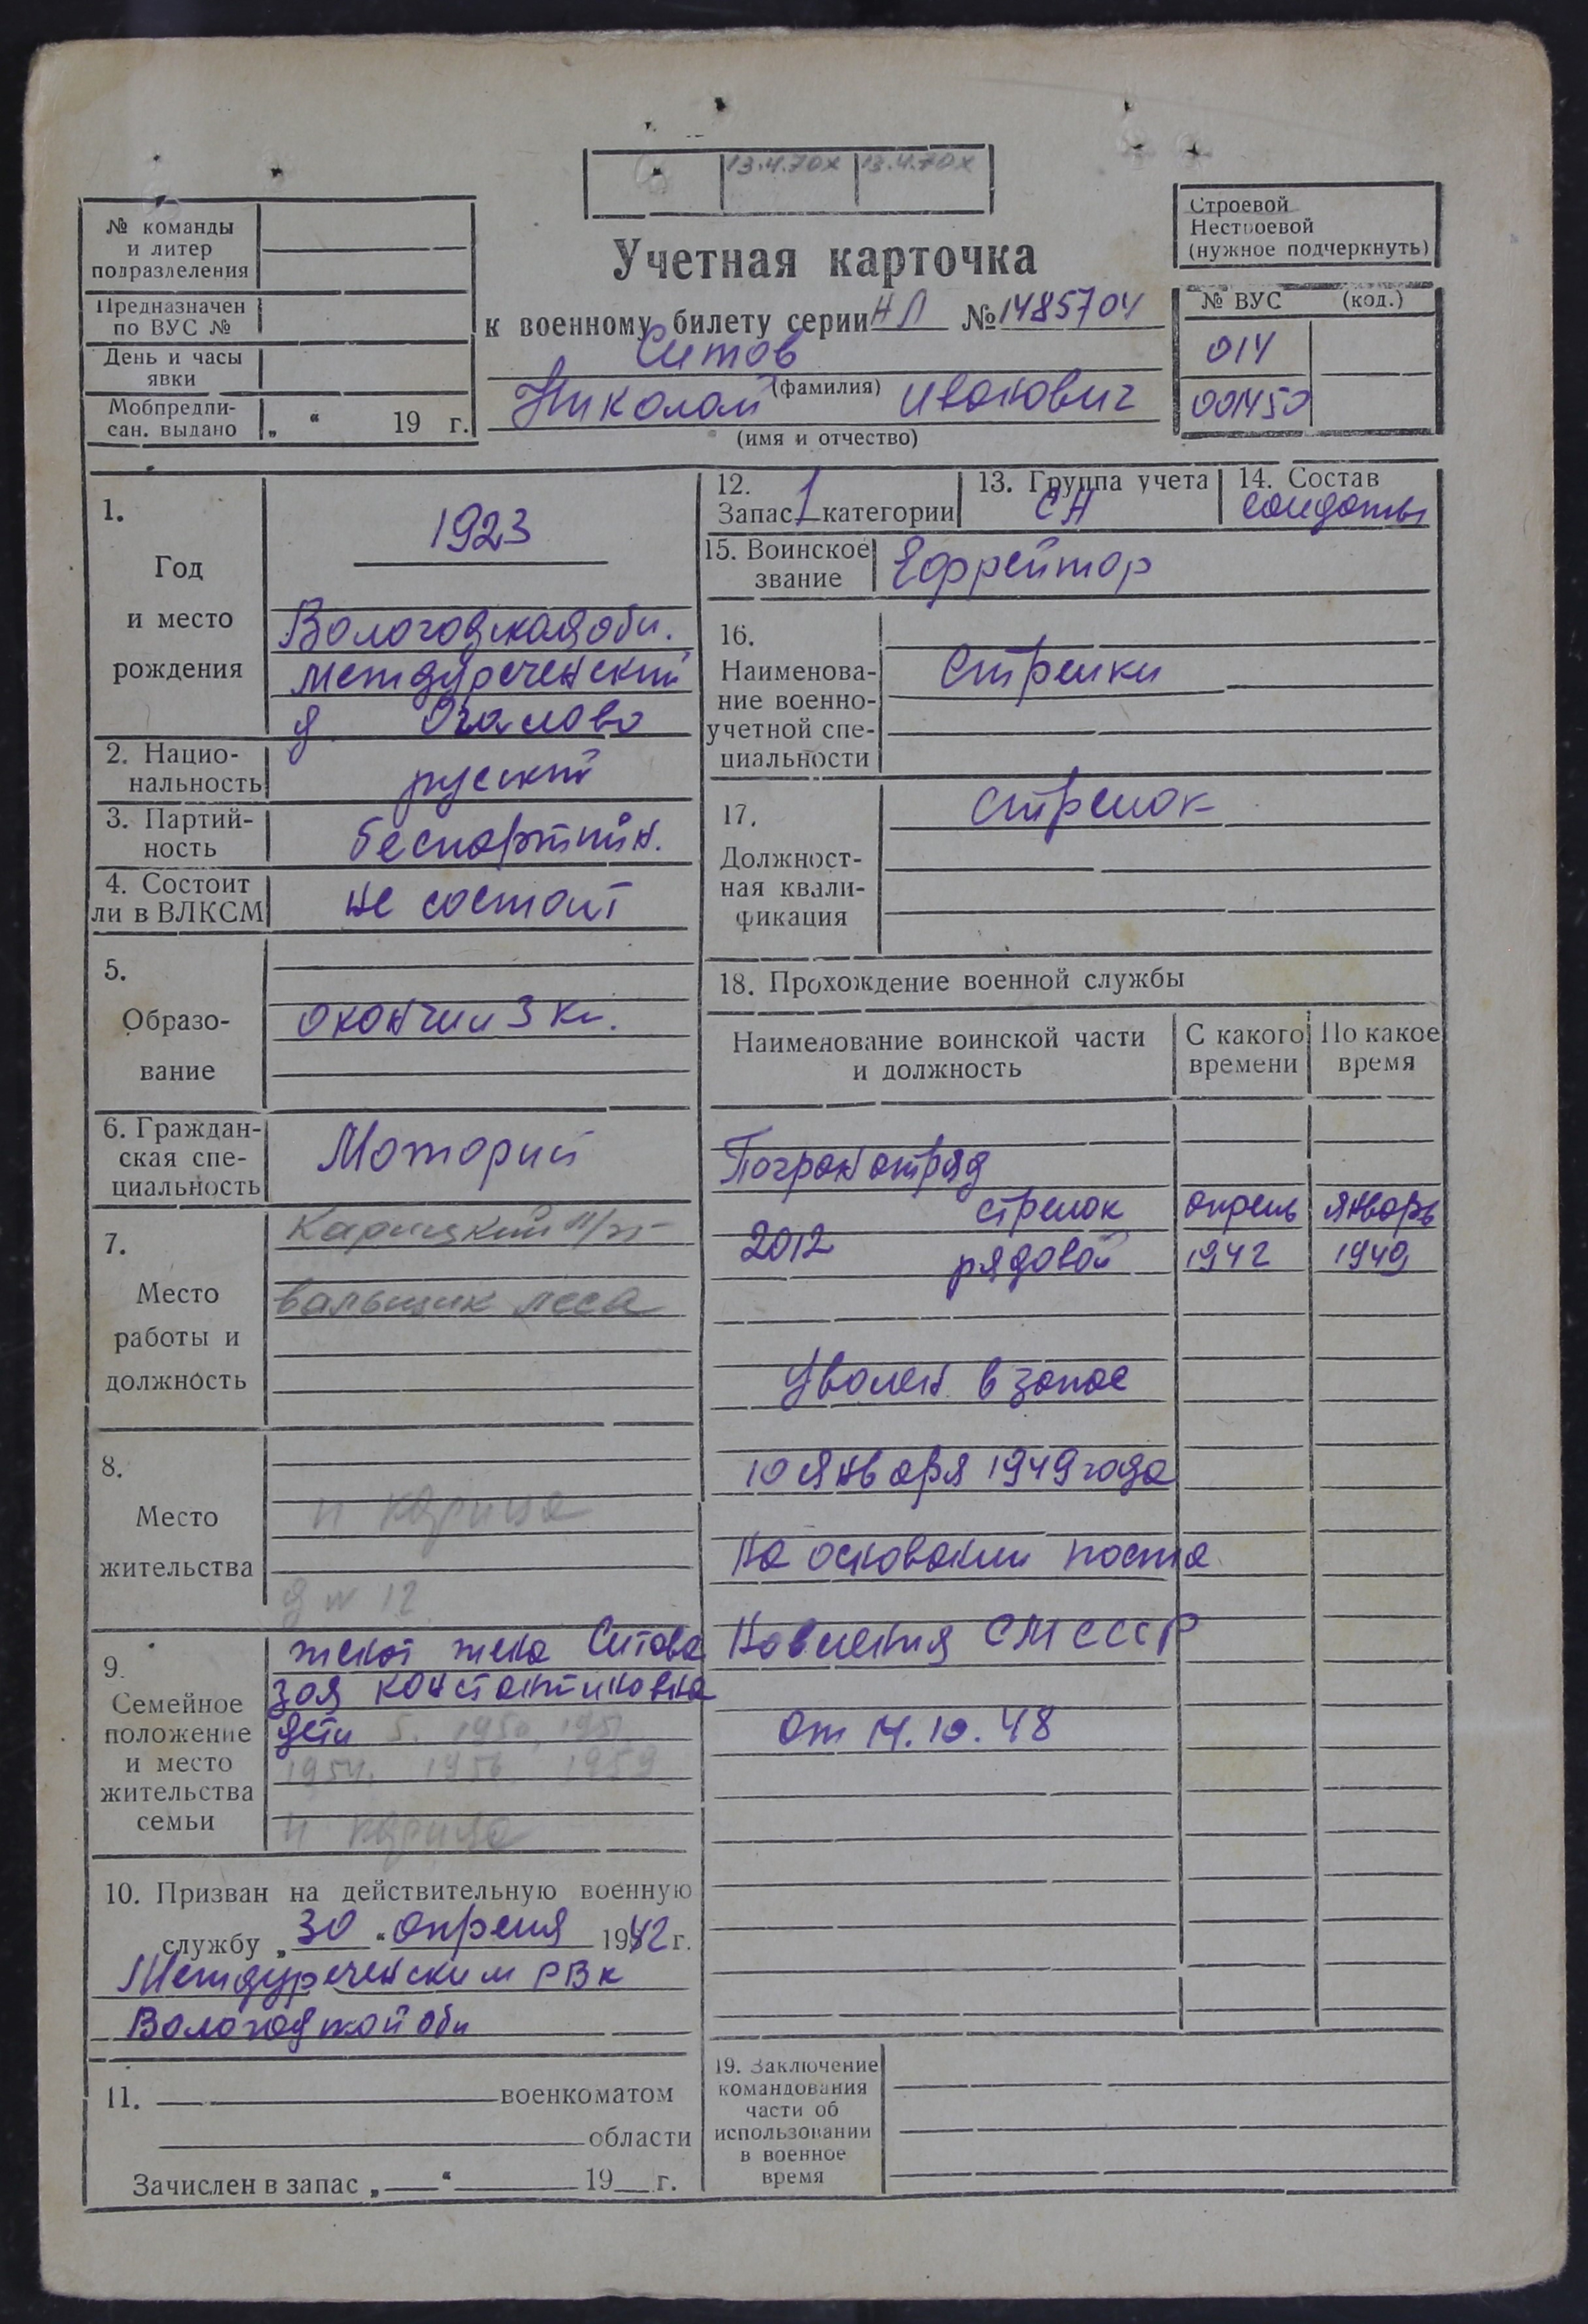 13.4.70х 13.4.70х
№ команды
и литер
подразделения
Предназначен
по ВУС №
День и часы
явки
Мобпредпи-
сан. выдано „ “ 19 г.
Учетная карточка
к военному билету серии НЛ № 1485704
Ситов
(фамилия)
Николай Иванович
(имя и отчество)
Строевой
Нестроевой
(нужное подчеркнуть)
№ ВУС (код.)
014
001450
1.
Год
и место
рождения
1923
Вологодская обл.
Междуреченский
д. Огалово
2. Нацио-
нальность
русский
3. Партий-
ность
беспартийн.
4. Состоит
ли в ВЛКСМ
не состоит
5.
Образо-
вание
окончил 3 кл.
6. Граждан-
ская спе-
циальность
Моторист
7.
Место
работы и
должность
Карицкий л/п
вальщик леса
8.
Место
жительства
п Карица
д № 12
9.
Семейное
положение
и место
жительства
семьи
женат жена Ситова
Зоя Константиновна
дети 5. 1950, 1951
1954. 1956 1959
п Карица
10. Призван на действительную военную
службу „30“ апреля 1942 г.
Междуреченским РВК
Вологодской обл
11. военкоматом
области
Зачислен в запас „ “ 19 г.
12.
Запас 1 категории
13. Группа учета
СА
14. Состав
солдаты
15. Воинское
звание
Ефрейтор
16.
Наименова-
ние военно-
учетной спе-
циальности
Стрелки
17.
Должност-
ная квали-
фикация
стрелок
18. Прохождение военной службы
Наименование воинской части
и должность
С какого
времени
По какое
время
Погранотряд
стрелок апрель январь
2012 рядовой 1942 1949
Уволен в запас
10 января 1949 года
на основании поста
новления СМ СССР
от 14.10.48
19. Заключение
командования
части об
использовании
в военное
время